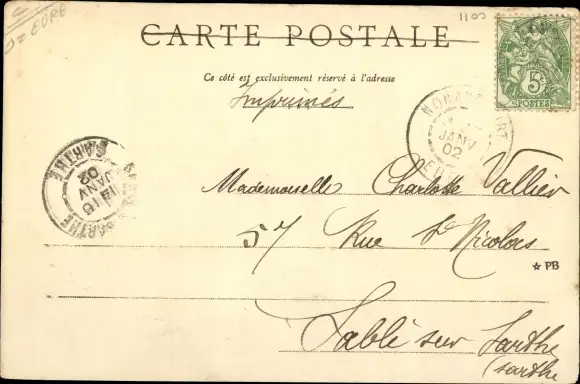 D= EURE
1100
CARTE POSTALE
Ce côté est exclusivement réservé à l'adresse
Imprimés
5c
POSTES
JANV
02
EURE
SARTHE
16
JANV
02
SARTHE
Mademoiselle Charlotte Vallier
57 Rue St Nicolas
☆ PB
Sablé sur Sarthe
(Sarthe